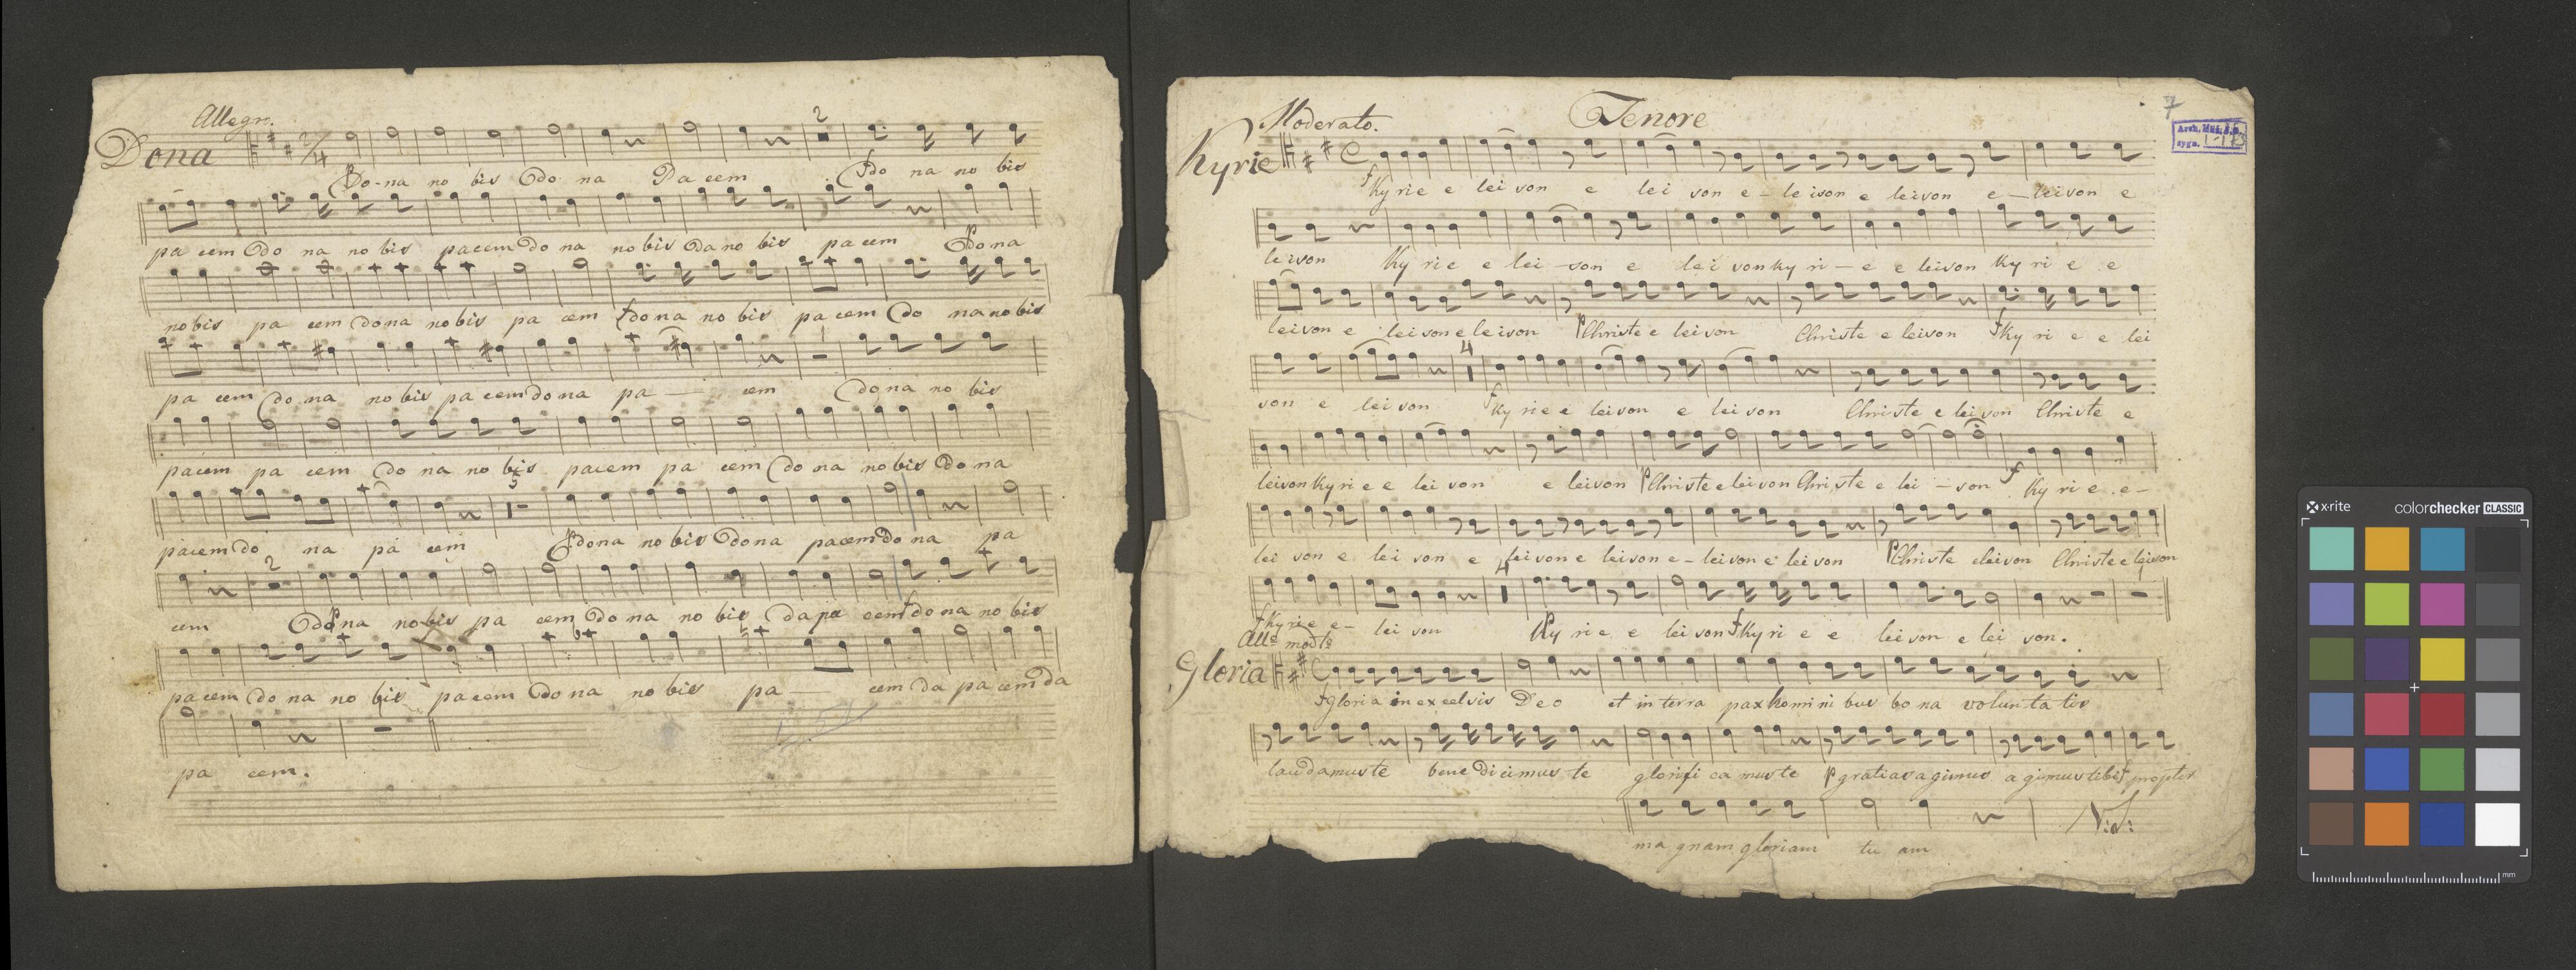 Allegro.
Dona
2/4
2
Do-na no bis do na Pa cem do na no bis
pa cem do na no bis pacem do na no bis Da no bis pa cem dona
nobis pa cem dona nobis pa cem dona no bis pa cem do na no bis
1
pa cem do na no bis pa cem dona pa — cem dona no bis
pacem pa cem do na no bis pacem pa cem do na nobis Do na
5
pacem do na pa cem dona no bis Dona pacem do na pa
2
cem dona nobis pa cem Do na no bis da pa cem f do na no bis
pacem do na no bis pacem do na no bis pa — cem da pa cem da
pa cem.
Moderato.
Tenore
7
Arch. Muz. J. G.
sygn.
Kyrie
C
f Ky rie e lei son e lei son e – le ison e leison e — leison e
leison Ky rie e lei – son e lei son ky ri – e e leison Ky ri e e
leison e leison e leison p Christe e leison Christe e leison f Ky ri e e lei
4
son e leison f Ky rie e leison e lei son Christe e leison Christe e
leison Ky ri e e lei son e leison p Christe e leison Christe e lei – son f Ky ri e e –
lei son e lei son e leison e leison e – leison e leison p Christe eleison Christe e leison
4
f ky ri e e – lei son Ky ri e e leison f Ky ri e e leison e lei son.
Allo modto
Gloria
C
f gloria in excelsis Deo et in terra pax homini bus bo na volun ta tis
laudamus te bene Dicimus te glorifi ca mus te p gratias agimus agimus tibi f propter
V: S:
ma gnam gloriam tu am
x·rite
colorchecker CLASSIC
mm